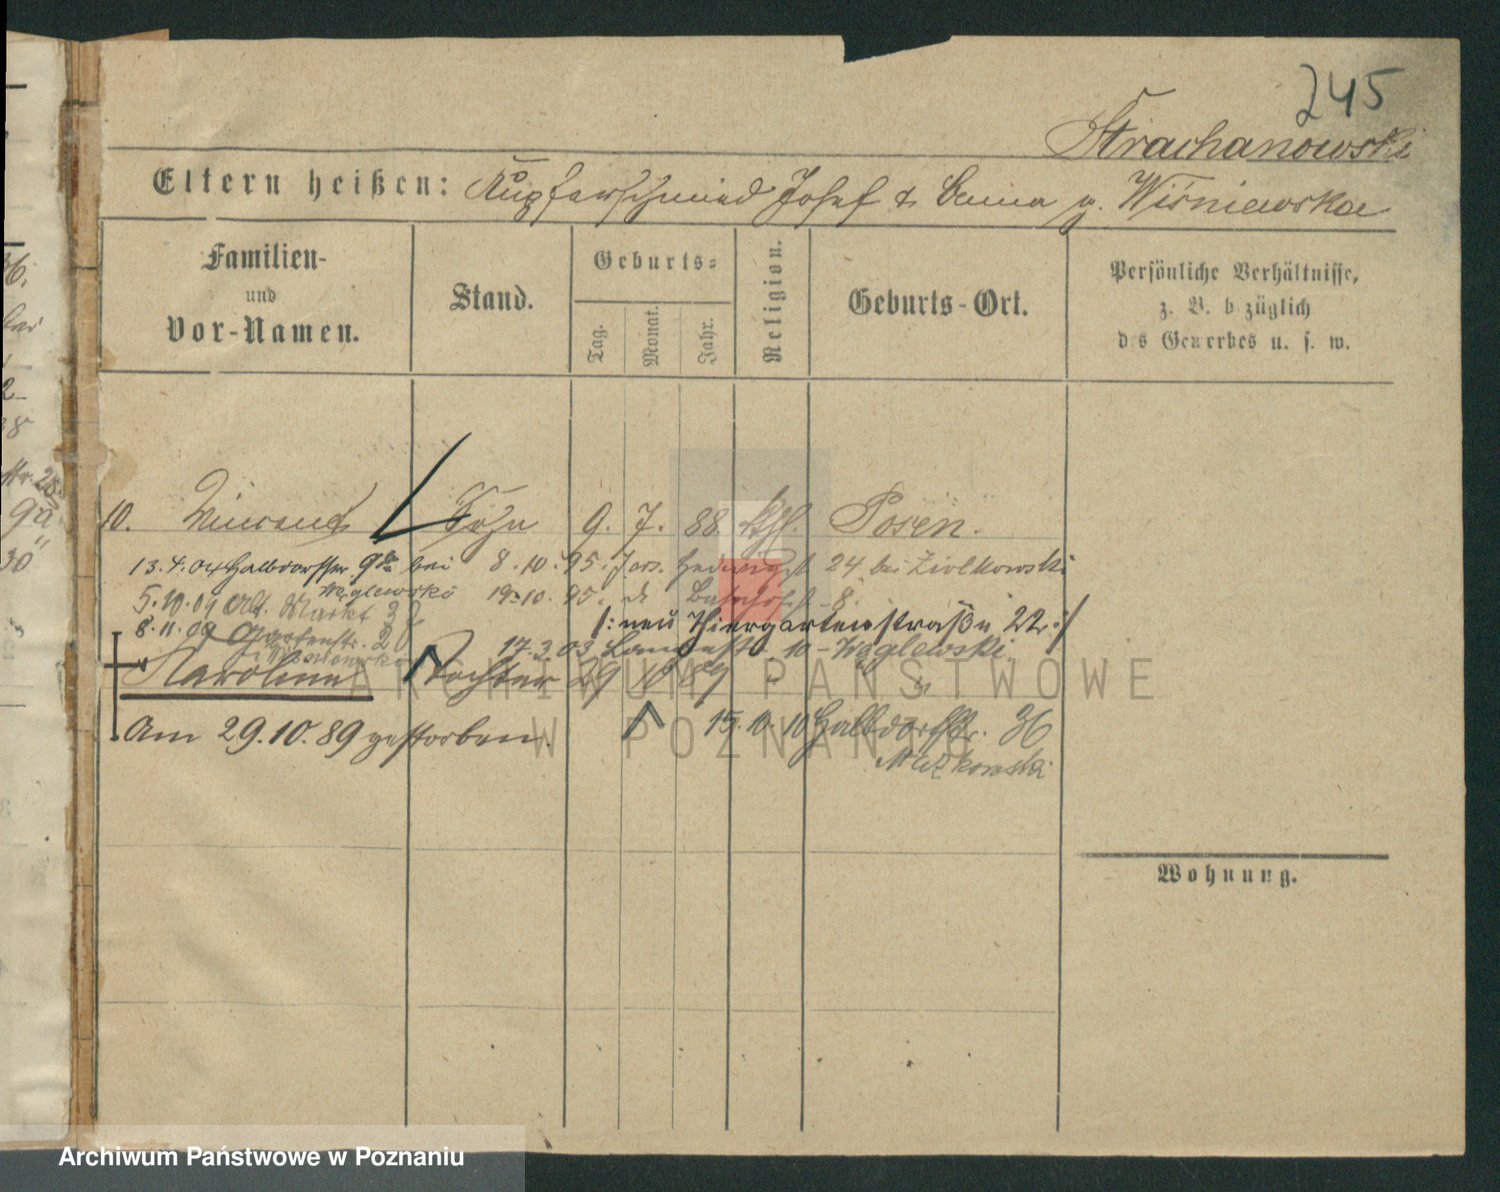 245
Strachanowski
Eltern heißen: Kupferschmied Josef & Anna g. Wiśniewska
Familien-
und
Vor-Namen.
Stand.
Geburts-
Tag.
Monat.
Jahr.
Religion.
Geburts-Ort.
Persönliche Verhältnisse,
z. B. bezüglich
des Gewerbes u. s. w.
10. Vincent Sohn 9. 7. 88. kth. Posen.
13.4.04 Halbdorfstr 9a bei 8.10.95. Jers. Hedwigst 24 bei Ziolkowski
Węglewski 19.10.95. Bahnhofst 8.
5.10.09 Alt. Markt
/: neu Thiergartenstraße 22 :/
8.11.09 Gartenstr. 20
17.3.03 10 - Węglewski
Karoline Tochter 29 10 89 " " "
Am 29.10.89 gestorben.
15.10.10 Halbdorfstr. 36
Wohnung.
ARCHIWUM PAŃSTWOWE
W POZNANIU
Archiwum Państwowe w Poznaniu